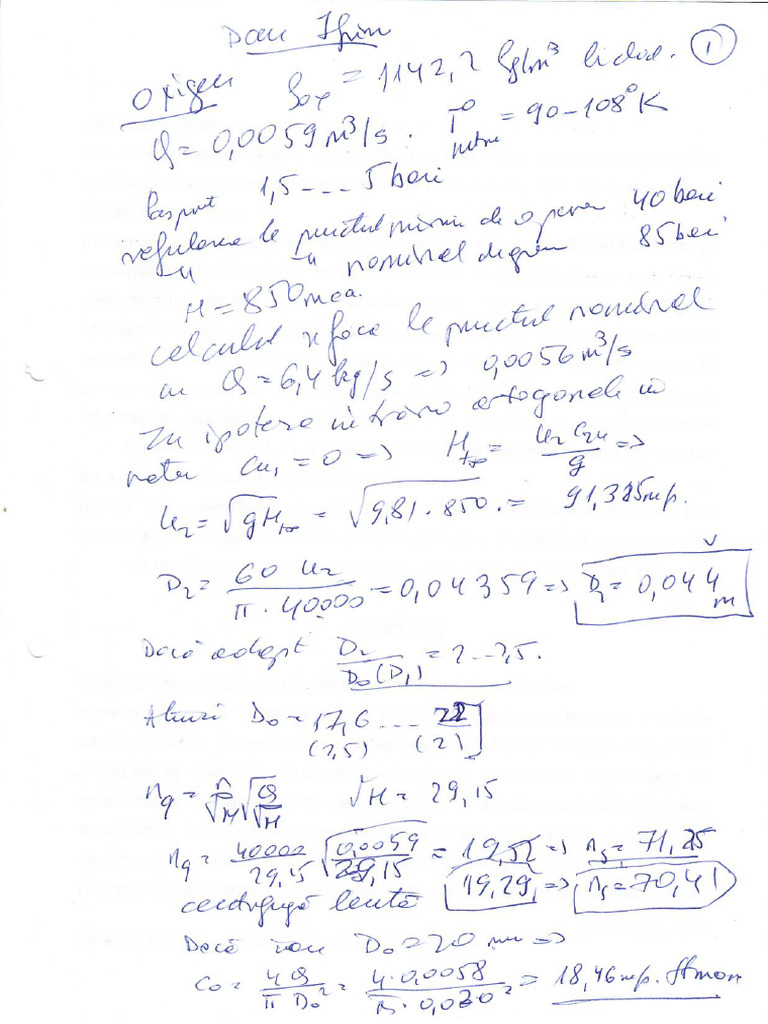 Dan Ifrim
Oxigen ρox = 1142,2 kg/m³ lichid. ①
Q = 0,0059 m³/s. T° = 90-108°K
1,5 --- 5 bari
regularea la punctul minim de operare 40 bari
-"- -"- nominal de 85 bari
H = 850 mca.
calculul se face la punctul nominal
cu Q = 6,4 kg/s => 0,0056 m³/s
In ipoteza intrării ortogonale in
retea Cu₁ = 0 => Ht∞ = u₂ c₂u / g =>
u₂ = √gHt∞ = √9,81 · 850 . = 91,315 m/s.
D₂ = 60 u₂ / π · 40000 = 0,04359 => D₂ = 0,044 m
Dacă adopt D₂ / D₀(D₁) = 2 -- 2,5.
Atunci D₀ = 17,6 --- 22
(2,5) (2)
nq = n/√H √Q/√H √H = 29,15
nq = 40000/29,15 √0,0059/29,15 = 19,52 => ns = 71,25
19,29 => ns = 70,41
centrifugă lentă
Dacă iau D₀ = 20 mm =>
C₀ = 4Q / π D₀² = 4·0,0058 / π·0,020² = 18,46 m/s.